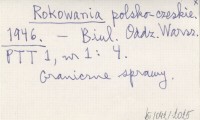 Rokowania polsko-czeskie.
1946. – Biul. Oddz. Warsz.
PTT 1, nr 1: 4.
Graniczne sprawy.